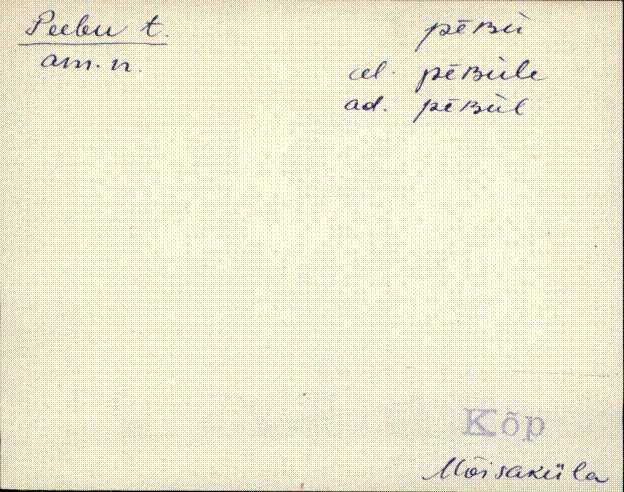 Peebu t.
am. n.
pēʙù
al. pēʙùle
ad. pēʙùl
Kõp
Mõisaküla